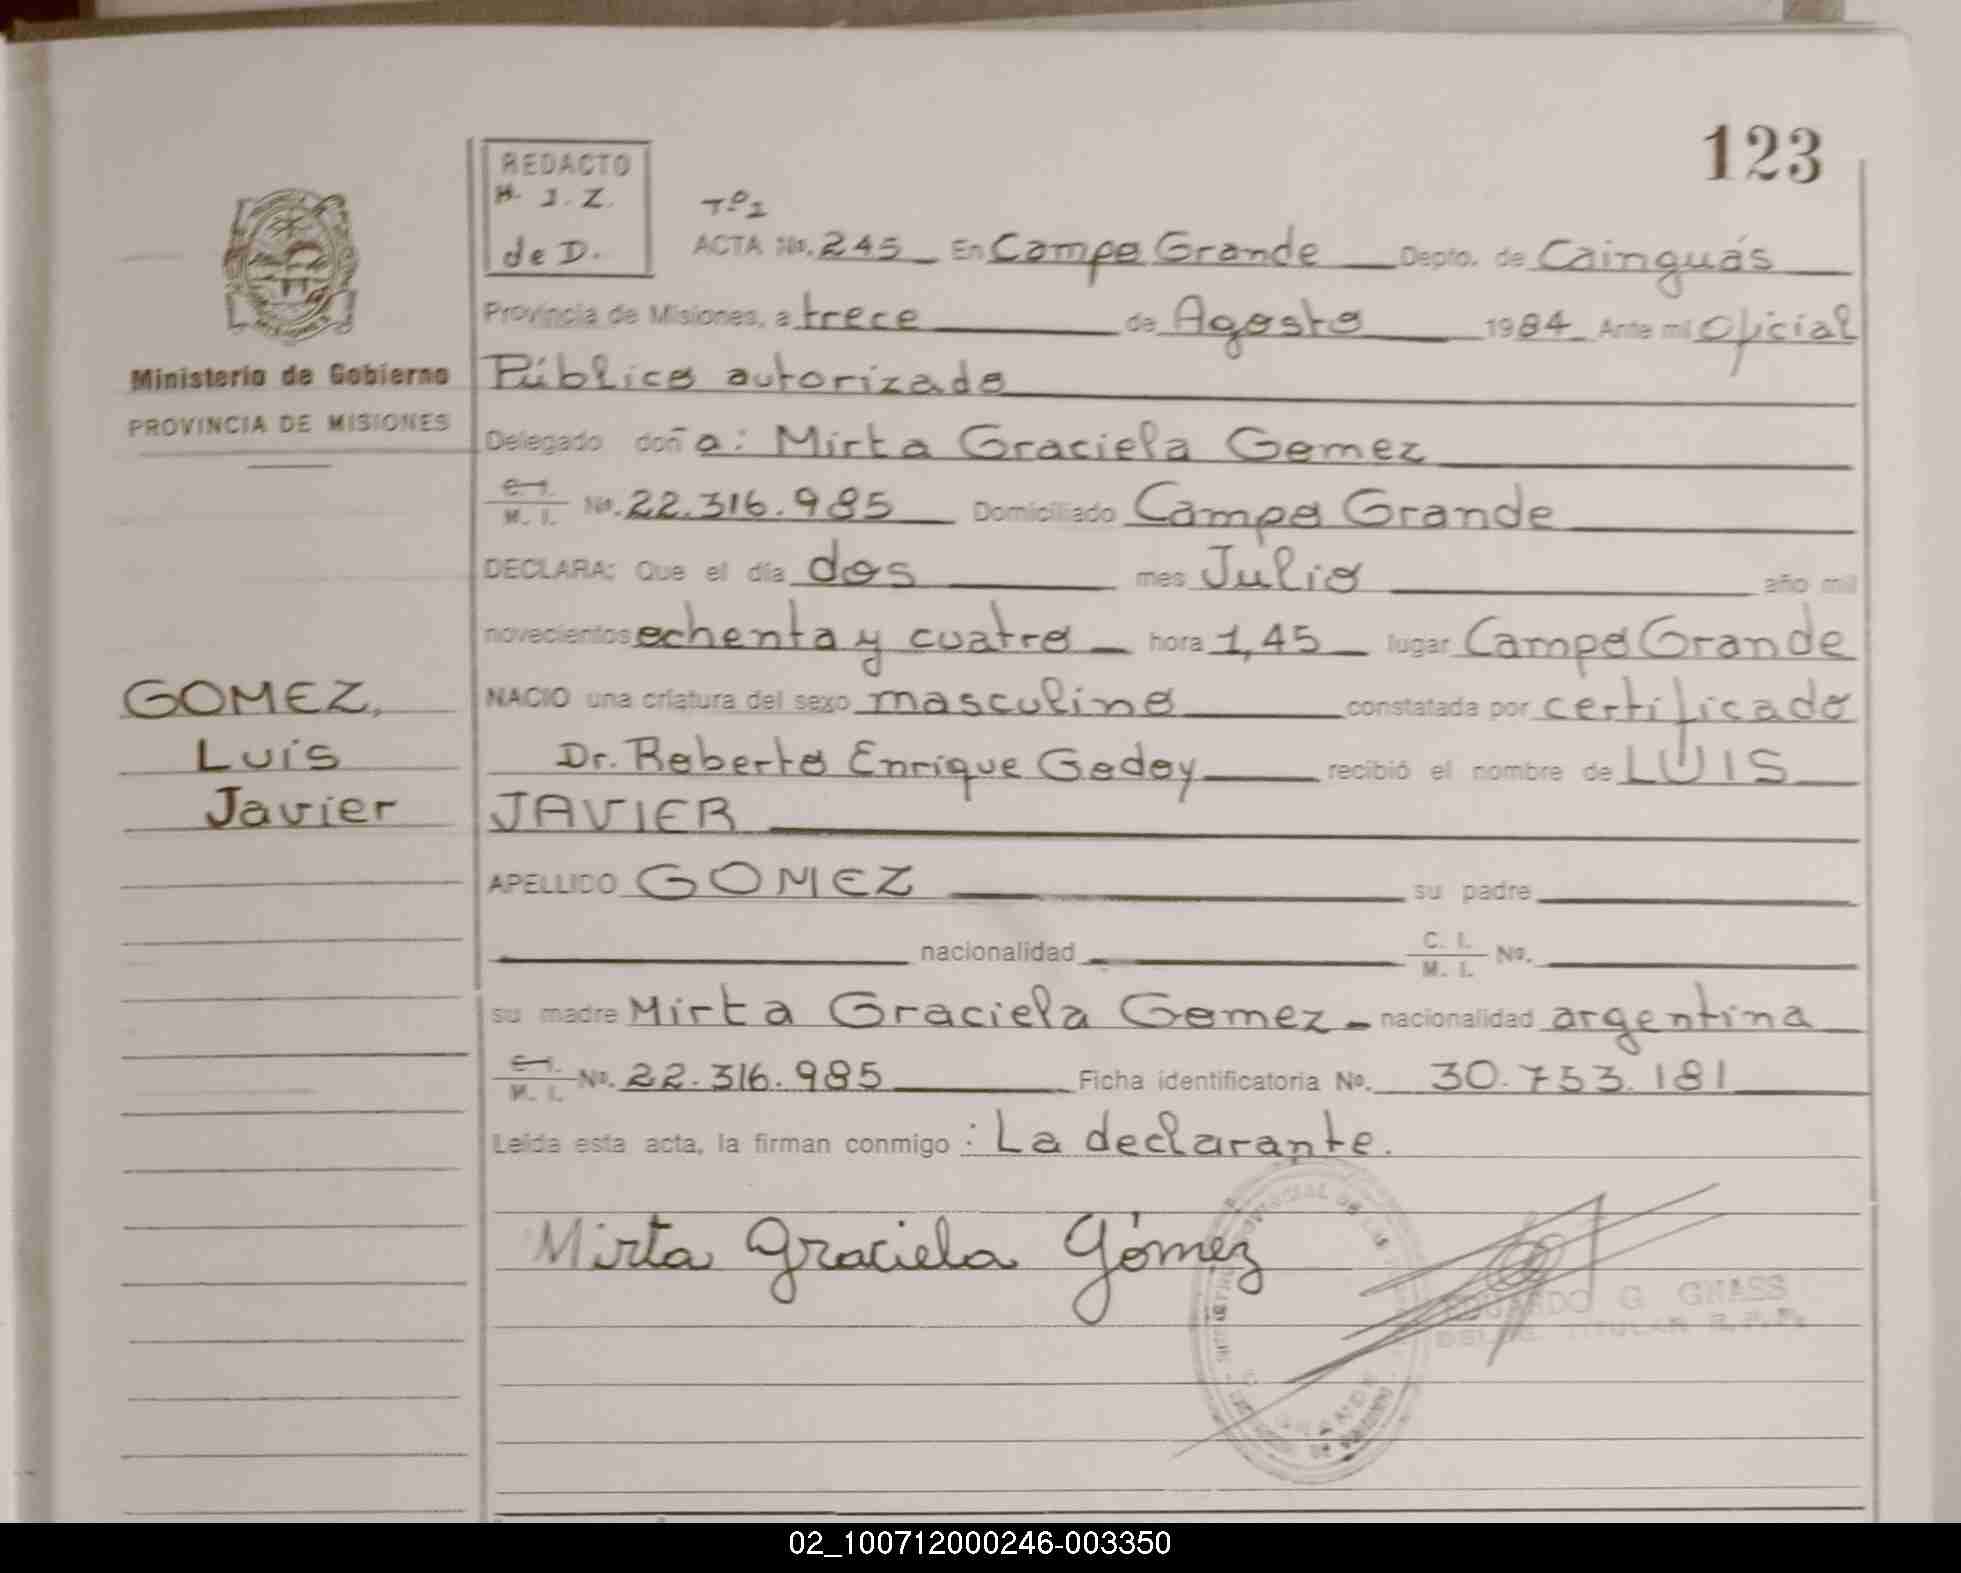 123
REDACTO
M. I. Z.
de D.
Tº1
ACTA No. 245 En Campo Grande Depto. de Cainguás
Provincia de Misiones, a trece de Agosto 1984 Ante mi Oficial
Ministerio de Gobierno
Público autorizado
PROVINCIA DE MISIONES
Delegado doña: Mirta Graciela Gomez
C. I. M. I. No. 22.316.985 Domiciliado Campo Grande
DECLARA: Que el día dos mes Julio año mil
novecientos ochenta y cuatro hora 1,45 lugar Campo Grande
GOMEZ,
NACIO una criatura del sexo masculino constatada por certificado
Luis
Dr. Roberto Enrique Godoy recibió el nombre de LUIS
Javier
JAVIER
APELLIDO GOMEZ su padre
nacionalidad C. I. M. I. No.
su madre Mirta Graciela Gomez nacionalidad argentina
C. I. M. I. No. 22.316.985 Ficha identificatoria No. 30.753.181
Leída esta acta, la firman conmigo : La declarante.
Mirta Graciela Gómez
EDUARDO G
TITULAR
02_100712000246-003350